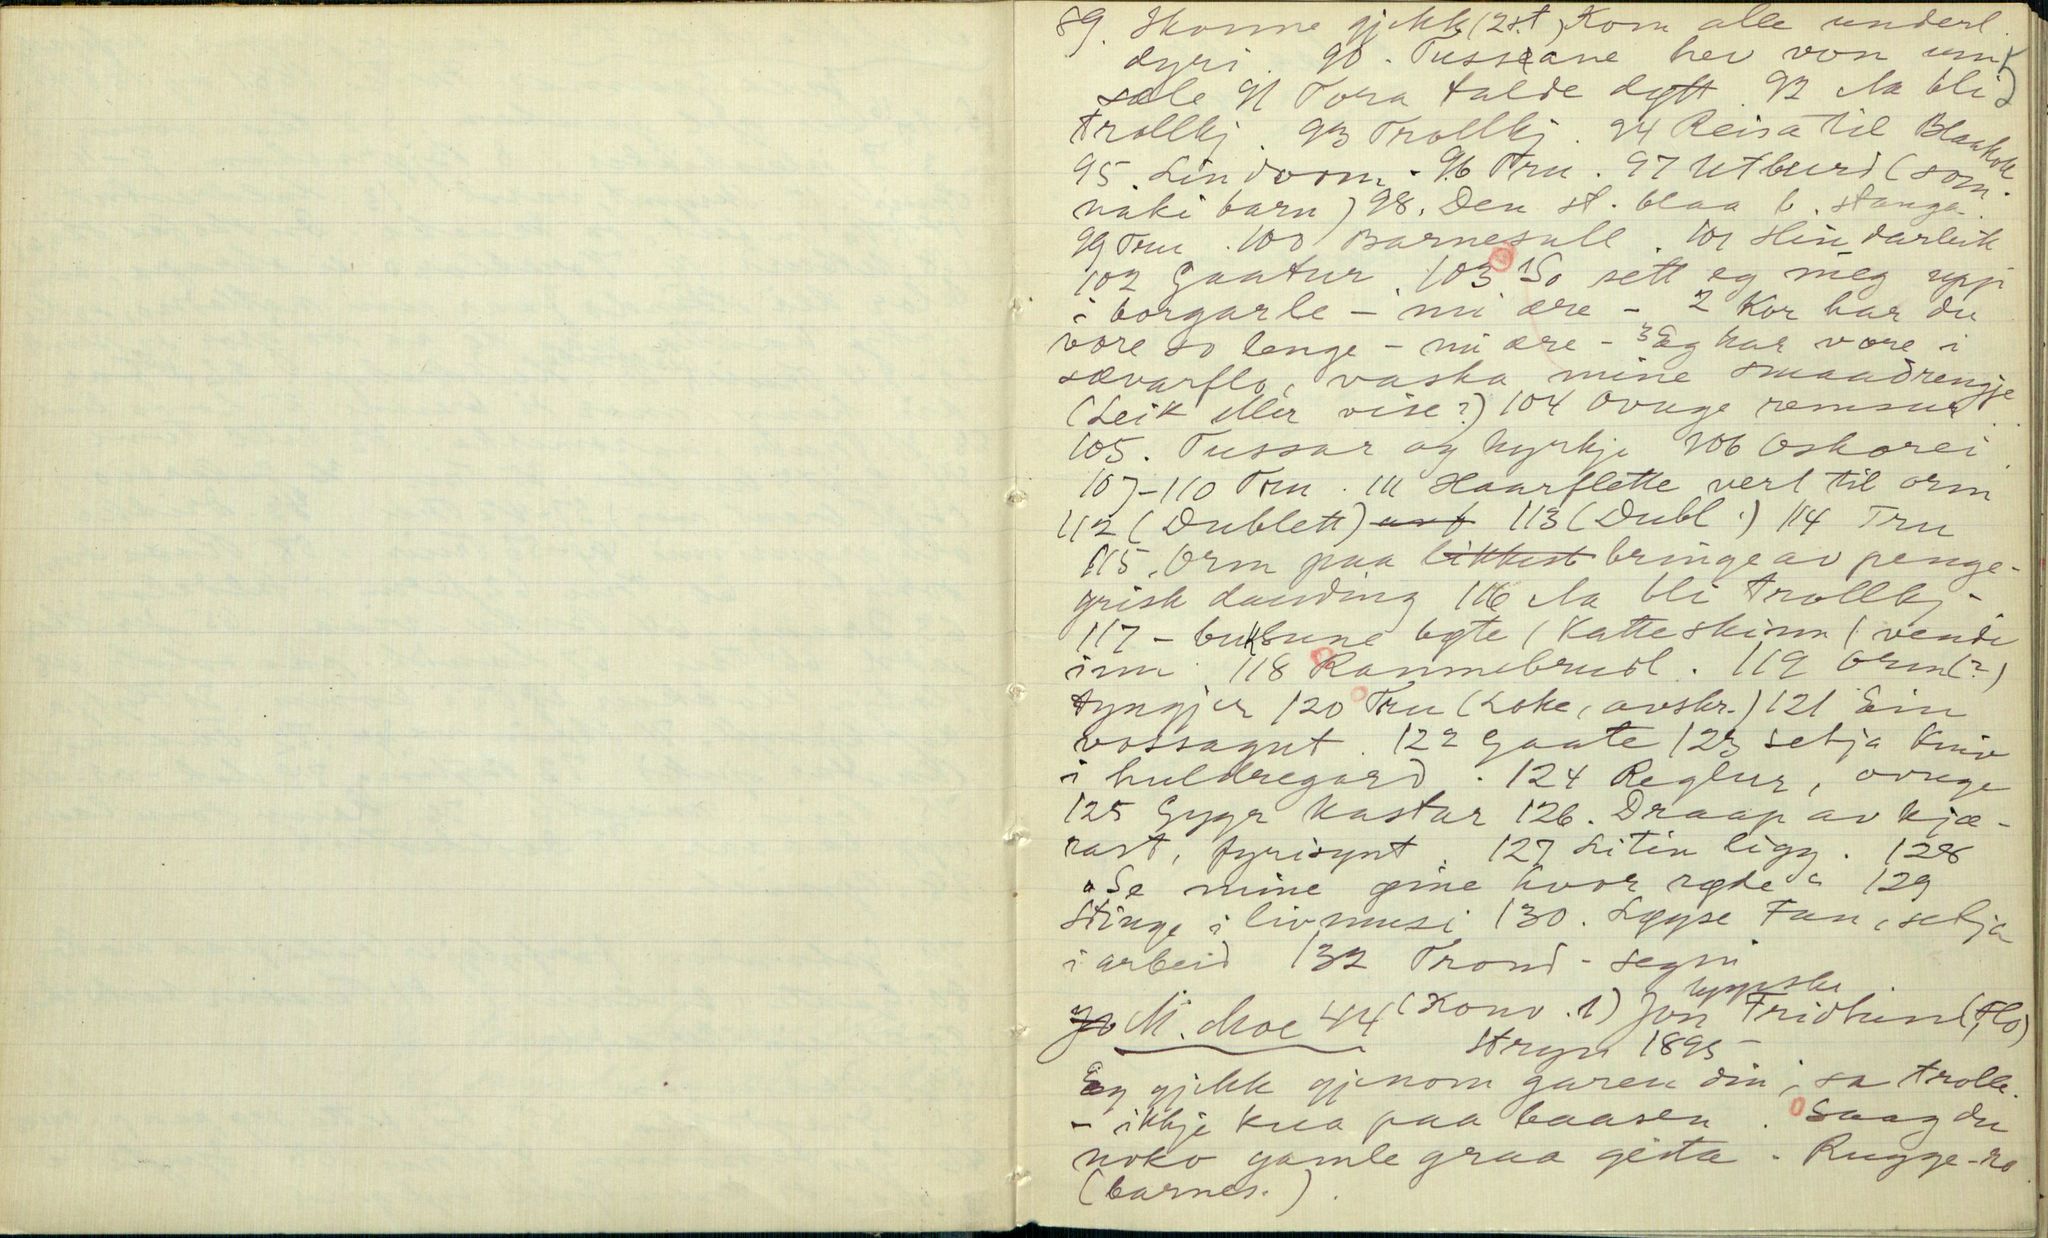 89. Konne gjekk (2 st.) Kom alle underl.
dyri. 90. Tussane hev von um
sæle 91 Tora talde dytt. 92 Aa bli
trollkj. 93 Trollkj. 94 Reisa til Blaakoll
95. Lindorm. 96 Tru. 97 Utburd (som
naki barn) 98. Den st. blaa b. stanga.
99 Tru. 100 Barnesull. 101 Hindarleik
102 Gaatur. 103 1 So sett eg meg uppi
i borgarle - mi ære - 2 Kor har du
vore so lenge - mi ære - 3 Eg har vore i
sævarflo, vaska mine smaadrengje
(Leik eller vise?) 104 Ovuge remsur.
105. Tussar og kyrkje 106 Oskorei.
107-110 Tru. 111 Haarflette vert til orm
112 (Dublett) 113 (Dubl.) 114 Tru
115. Orm paa likkist bringe av penge-
grisk dauding 116 Aa bli trollkj-
117 - buksune bøte (Katteskinn (vende
inn. 118 Rannebrudl. 119 Orm (?)
tyngjer 120 Tru (Loke, avskr.) 121 Ein
vossagut. 122 Gaate 123 setja kniv
i huldregard. 124 Reglur, ovuge
125 Gygr kastar 126. Draap av kjæ-
rast, fyrisynt. 127 Litin ligg. 128
"Se mine øine hvor røde" 129
Stinge i livmusi 130. Løyse Fan, setja
i arbeid 132 Trond-segni
uppskr.
M. Moe 44 (Konv. 1) Jon Fridhun (Flo)
Stryn 1895
Eg gjekk gjenom garen din, sa trolle.
- ikkje kua paa baasen. Saag du
noko gamle graa geita - Rugge-ro
(barnes.).